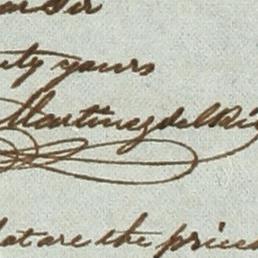 Sir
yours
Martinez del Rio
hat are the prices